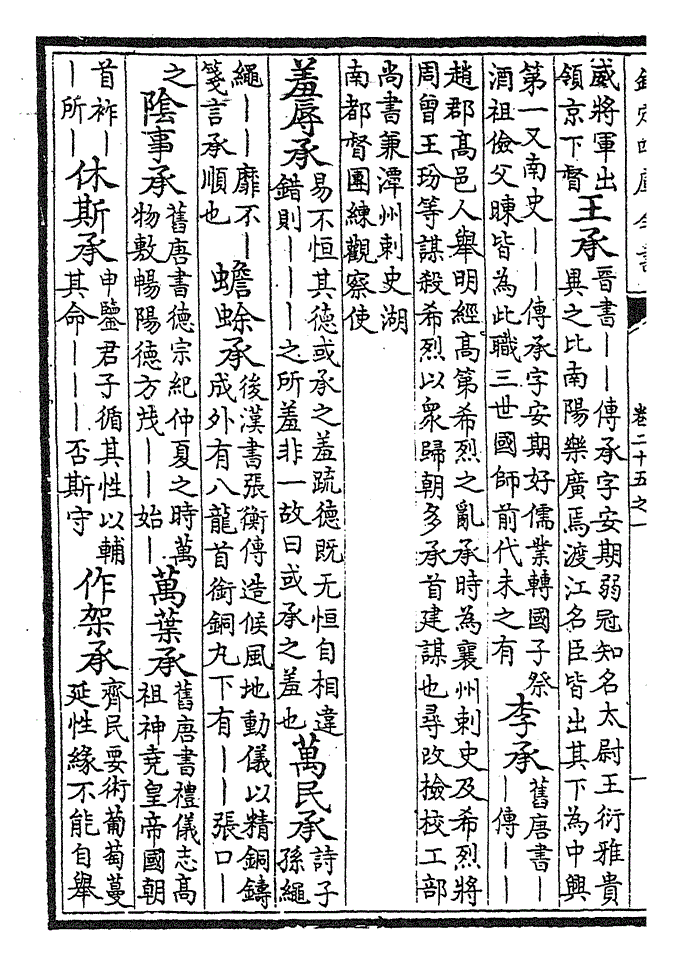 欽定四庫全書
卷二十五之一
威將軍出
領京下督
王承
晉書——傳承字安期弱冠知名太尉王衍雅貴
異之比南陽樂廣焉渡江名臣皆出其下為中興
第一又南史——傳承字安期好儒業轉國子祭
酒祖儉父暕皆為此職三世國師前代未之有
李承
舊唐書—
—傳——
趙郡高邑人舉明經高第希烈之亂承時為襄州刺史及希烈將
周曾王玢等謀殺希烈以衆歸朝多承首建謀也尋改撿校工部
尚書兼潭州刺史湖
南都督團練觀察使
羞辱承
易不恒其德或承之羞疏德既无恒自相違
錯則———之所羞非一故曰或承之羞也
萬民承
詩子
孫繩
繩——靡不—
箋言承順也
蟾蜍承
後漢書張衡傳造候風地動儀以精銅鑄
成外有八龍首銜銅丸下有——張口—
之
陰事承
舊唐書德宗紀仲夏之時萬
物敷暢陽德方茂——始—
萬葉承
舊唐書禮儀志高
祖神堯皇帝國朝
首祚—
—所—
休斯承
申鑒君子循其性以輔
其命———否斯守
作架承
齊民要術葡萄蔓
延性緣不能自舉